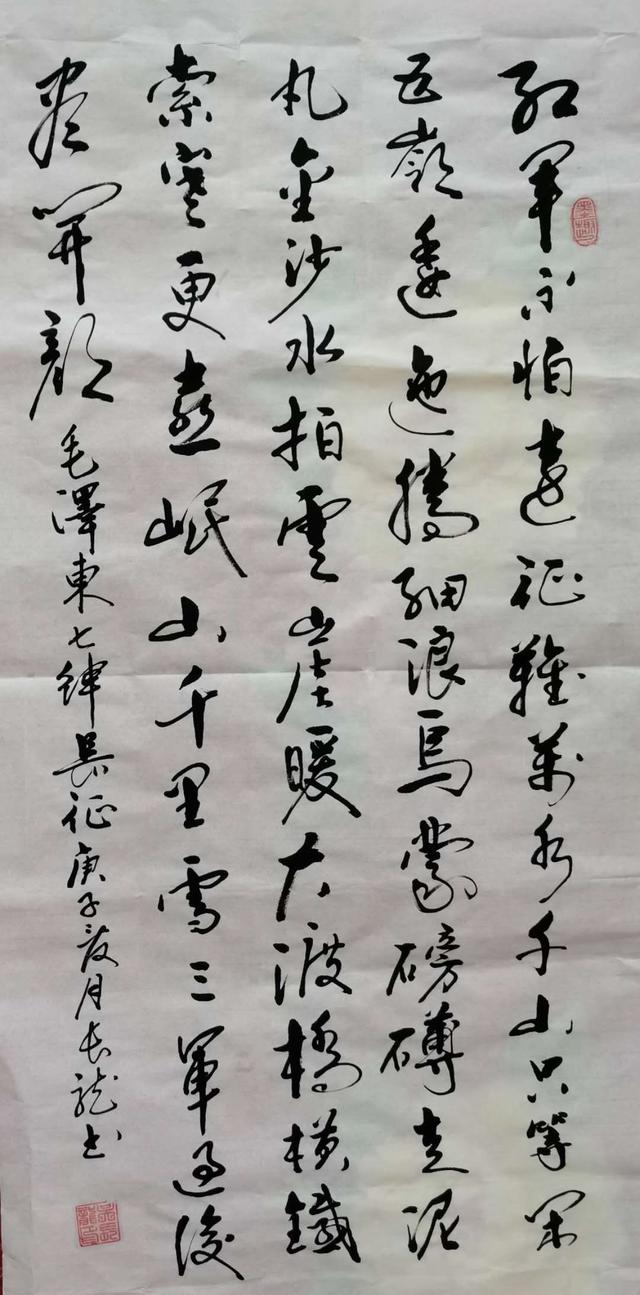 红军不怕遠征難萬水千山只等闲
五嶺逶迤騰細浪烏蒙磅礴走泥
丸金沙水拍雲崖暖大渡橋橫鐵
索寒更喜岷山千里雪三軍過後
盡開顔
毛澤東七律長征庚子夏月长龙书